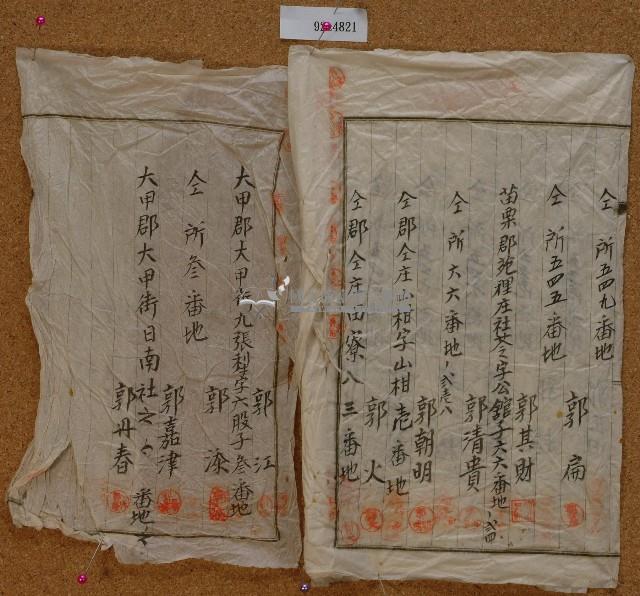 92 4821
仝所五四九番地
郭扁
仝所五四五番地
郭其財
苗栗郡苑裡庄社苓字公館子六六番地ノ弍四
郭清貴
仝所六六番地ノ弍壱八
郭朝明
仝郡仝庄山柑字山柑壱番地
郭火
仝郡仝庄田寮八三番地
郭江
大甲郡大甲街九張犁字六股子叁番地
郭漆
仝所叁番地
郭嘉津
大甲郡大甲街日南社 番地
郭丹春